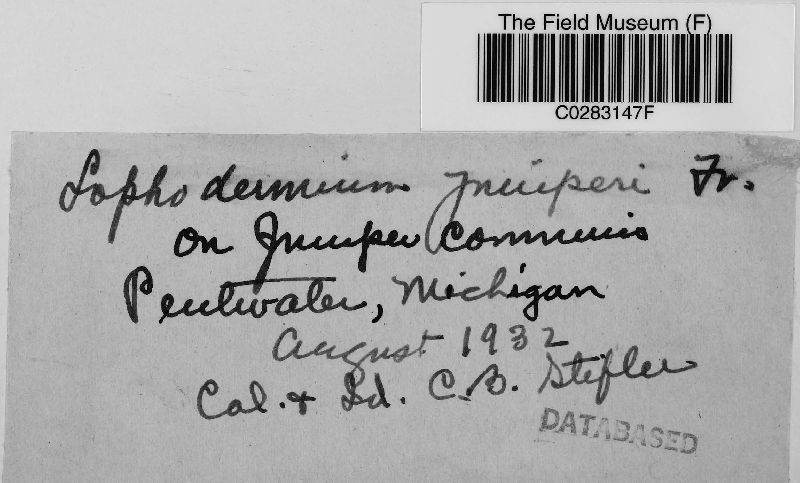 The Field Museum (F)
C0283147F
Lophodermium juniperi Fr.
on Juniper communis
Pentwater, Michigan
August 1932
Col. & Id. C.B. Stifler
DATABASED